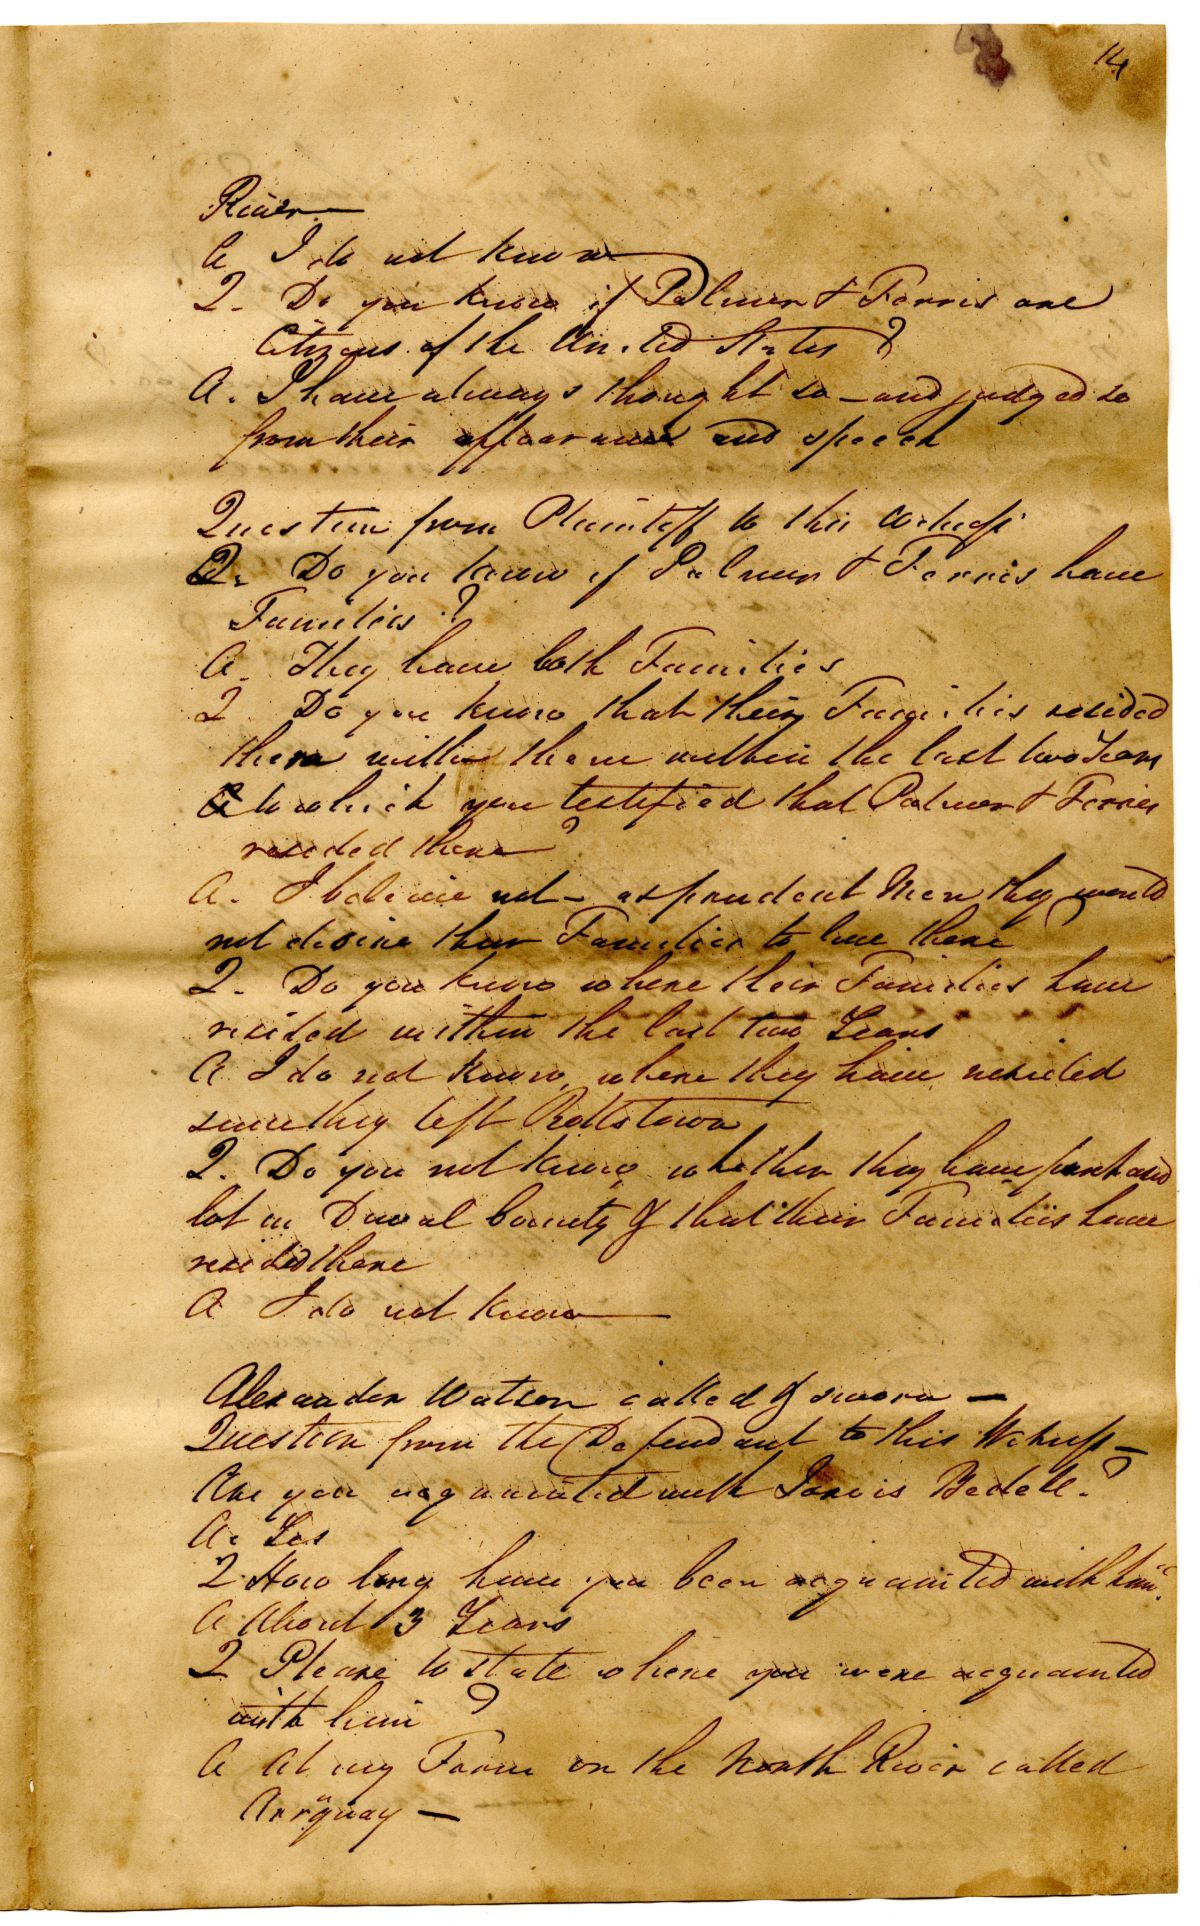 14
River—
A I do not know
Q. Do you know if Palmer & Ferris are
Citizens of the United States ?
A. I have always thought so — and judged so
from their appearance and speech
Question from Plaintiff to this Witness
Q. Do you know if Palmer & Ferris have
Families ?
A. They have both Families
Q Do you know that their Families resided
there with them within the last two Years
to which you testified that Palmer & Ferris
resided there ?
A. I believe not — as prudent Men they would
not desire their Families to live there
Q. Do you know where their Families have
resided within the last two Years
A I do not know, where they have resided
since they left Pottstown
Q. Do you not know whether they have and
lot in Duval County & that their Families have
resided there
A I do not know
Alexander Watson called & sworn —
Question from the Defendant to this Witness —
Are you acquainted with Bedell. ?
A. Yes
Q How long have you been acquainted with him ?
A About 3 Years
Q Please to state where you were acquainted
with him ?
A At my Farm on the North River called
—